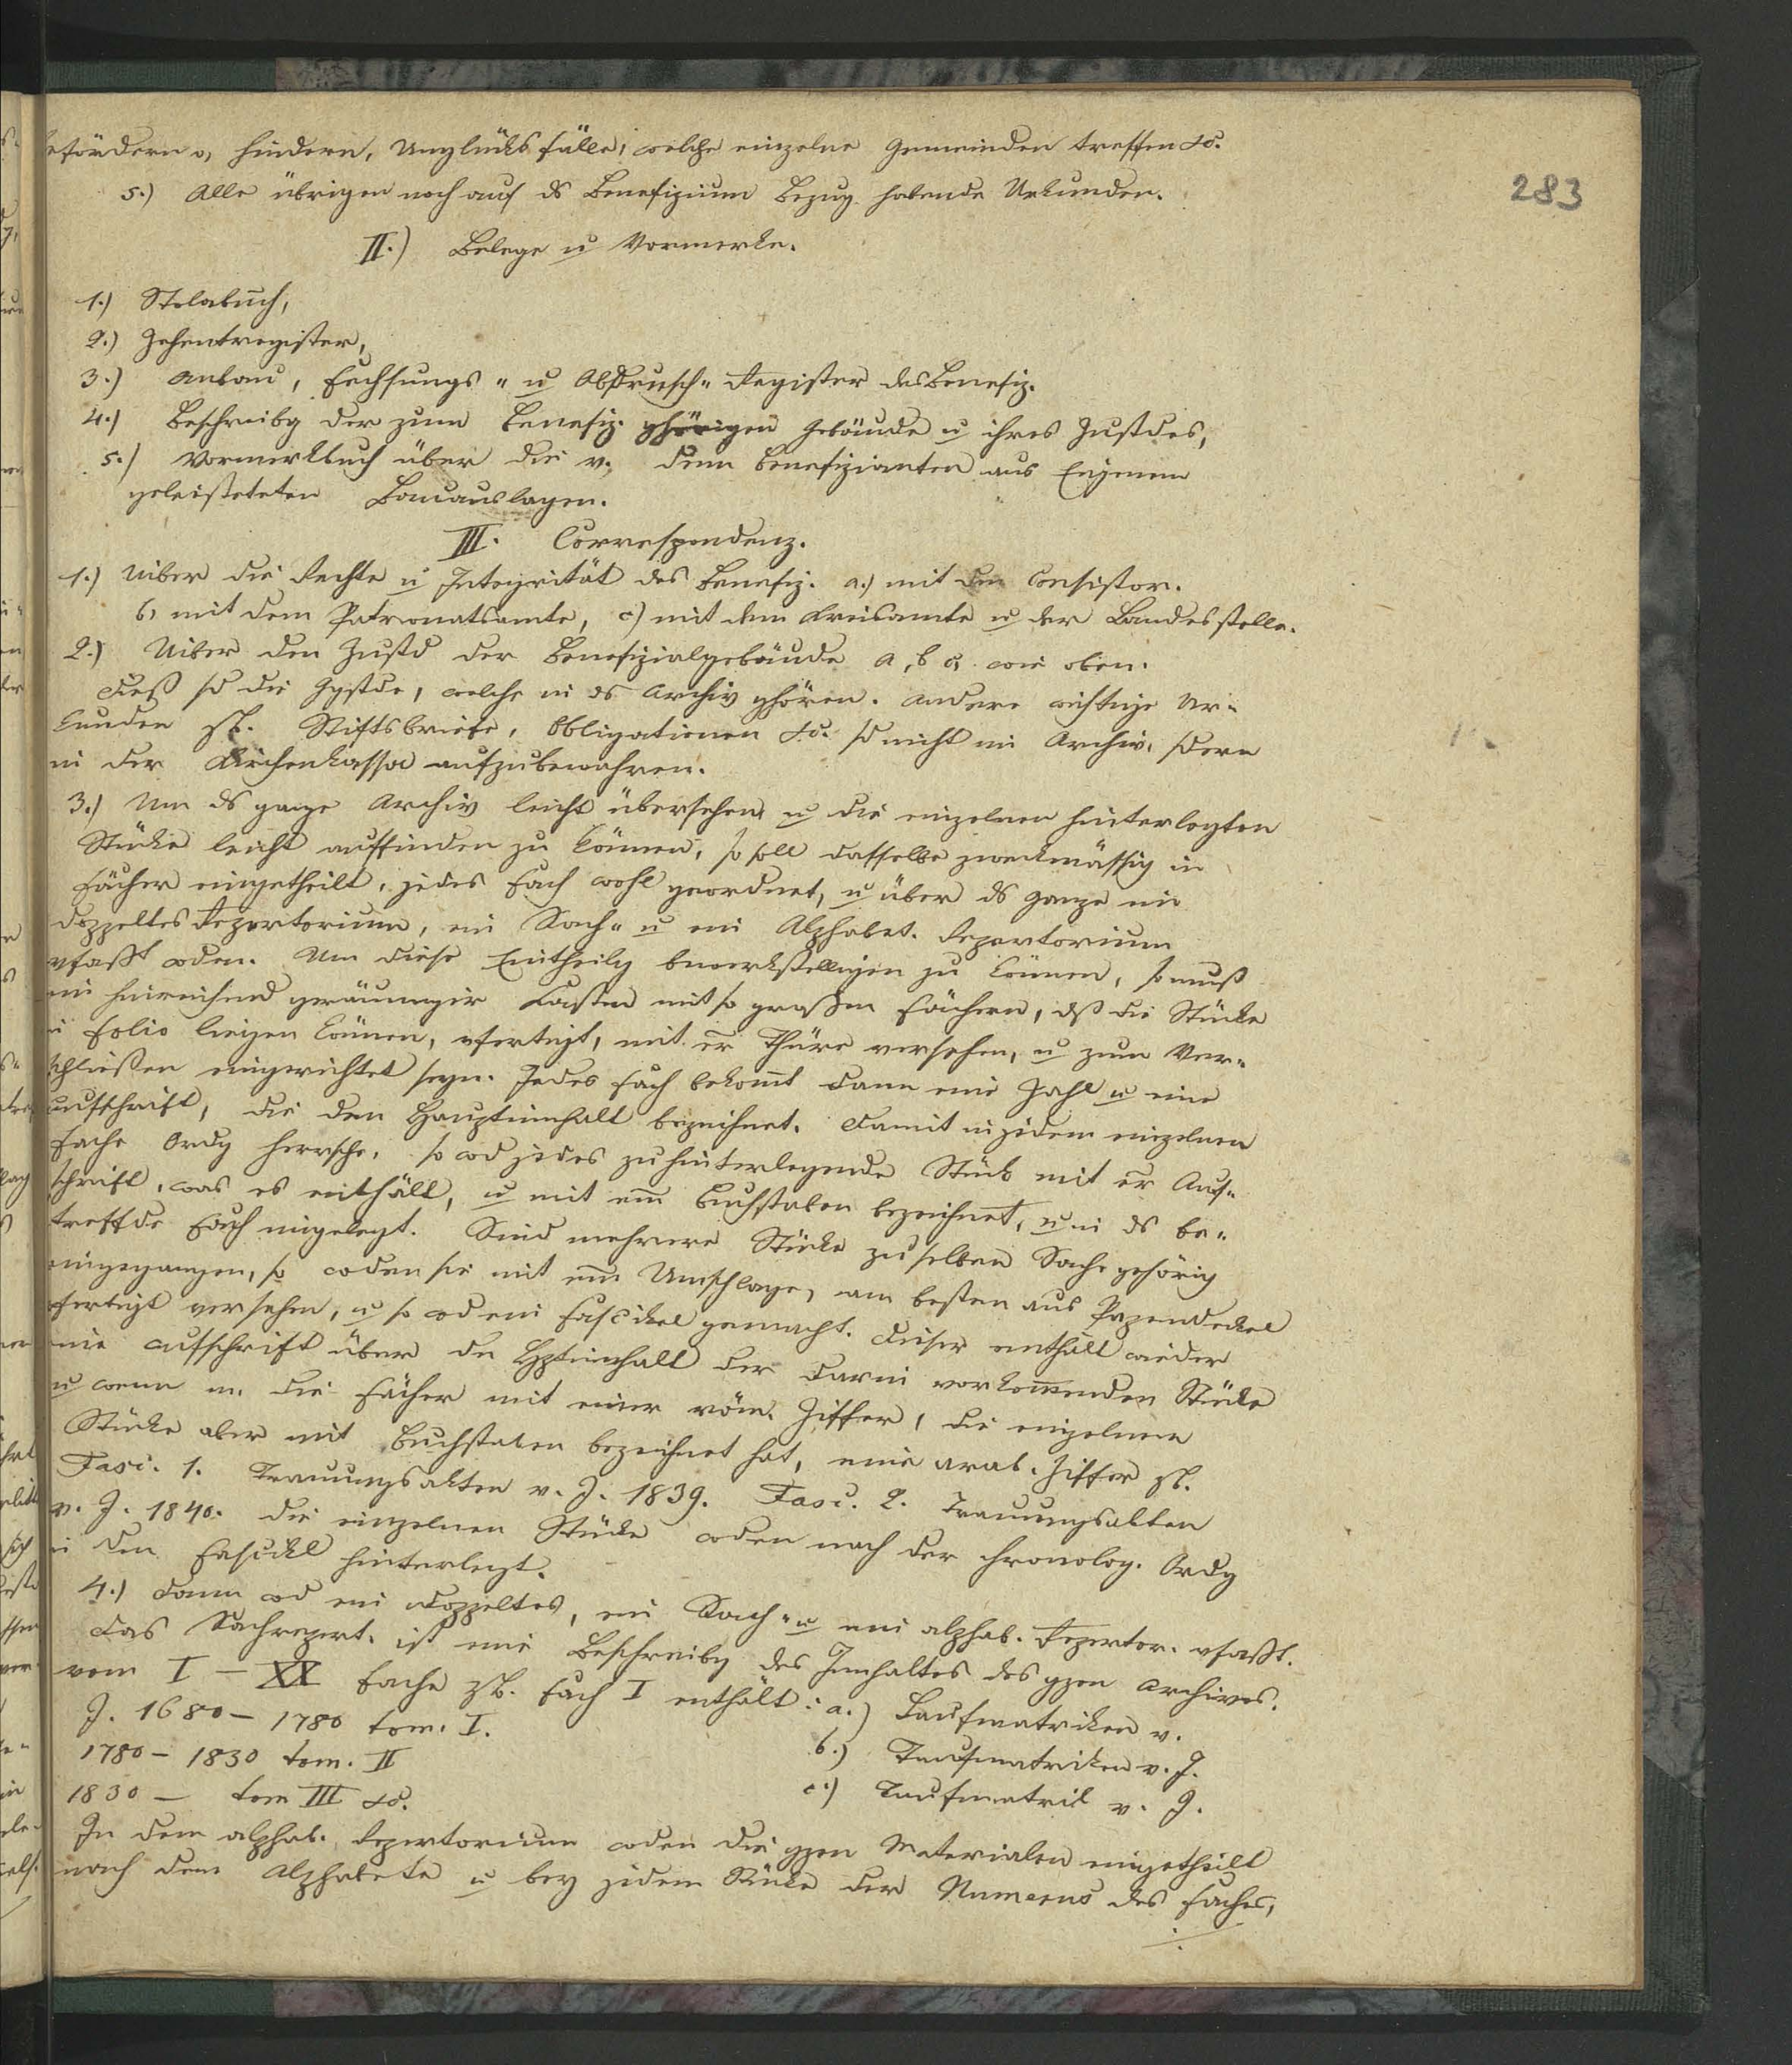 befördern o. hindern, Unglücksfälle, welche einzelne Gemeinden treffen etc.
283
5.) Alle übrigen noch auf ds Benefizium Bezug habende Urkunden.
II.) Belege u Vormerke.
1.) Stolabuch,
2.) Zehentregister,
3.) Anbau, Fechsungs- u Abdrusch-Register des Benefiz.
4.) Beschreibg der zum Benefiz. ghörigen Gebäude u ihres Zustdes,
5.) Vormerkbuch über die v. dem Benefizianten aus Eigenem
geleisteten Bauauslagen.
III. Correspondenz.
1.) Uiber die Rechte u Integrität des Benefiz. a.) mit dem Consistor.
b) mit dem Patronatsamte, c) mit dem Kreisamte u der Landesstelle.
2.) Uiber den Zustd der Benefizialgebäude a, b c, wie oben.
Dieß sd die Ggstde, welche in ds Archiv ghören. Andere wichtige Ur-
kunden zB. Stiftsbriefe, Obligationen etc. sd nicht im Archiv, sdern
in der Kirchenkassa aufzubewahren.
3.) Um ds ganze Archiv leicht übersehen u die einzelnen hinterlegten
Stücke leicht auffinden zu können, so soll dasselbe zweckmässig in
Fächer eingetheilt, jedes Fach wohl geordnet, u über ds Ganze ein
doppeltes Repertorium, ein Sach- u ein Alphabet. Repertorium
vfaßt wden. Um diese Eintheilg bewerkstelligen zu können, so muß
ein hinreichend geräumiger Kasten mit so großen Fächern, dß die Stücke
in Folio liegen können, vfertigt, mit er Thüre versehen, u zum Ver-
schließen eingerichtet seyn. Jedes Fach bekomt dann eine Zahl u eine
Aufschrift, die den Hauptinhalt bezeichnet. Damit in jedem einzelnen
Fache Ordg herrsche, so wd jedes zu hinterlegende Stück mit er Auf-
schrift, was es enthält, u mit em Buchstaben bezeichnet, u in ds be-
treffde Fach eingelegt. Sind mehrere Stücke zu selben Sache gehörig
eingegangen, so wden sie mit em Umschlage, am besten aus Papendeckel
vfertigt versehen, u so wd ein Fascikel gemacht. Dieser enthält wieder
eine Aufschrift über den Hptinhalt der darin vorkommenden Stücke
u wenn m. die Fächer mit einer röm. Ziffer, die einzelnen
Stücke aber mit Buchstaben bezeichnet hat, eine arab. Ziffer zB.
Fasc. 1. Trauungsakten v. J. 1839. Fasc. 2. Trauungsakten
v. J. 1840. Die einzelnen Stücke wden nach der chronolog. Ordg
in den Fascikl hinterlegt.
4.) Dann wd ein doppeltes, ein Sach- u ein alphab. Repertor. vfaßt.
Das Sachrepert. ist eine Beschreibg des Innhaltes des gzen Archives.
vom I – XX Fache zB. Fach I enthält: a.) Taufmatriken v.
J. 1680 – 1780 tom. I. b.) Taufmatriken v. J.
1780 – 1830 tom. II c.) Taufmatrik v. J.
1830 – tom III etc.
In dem alphab. Repertorium wden die gzen Materialen eingetheilt
nach dem Alphabete u bey jedem Stücke der Numerus des Faches,